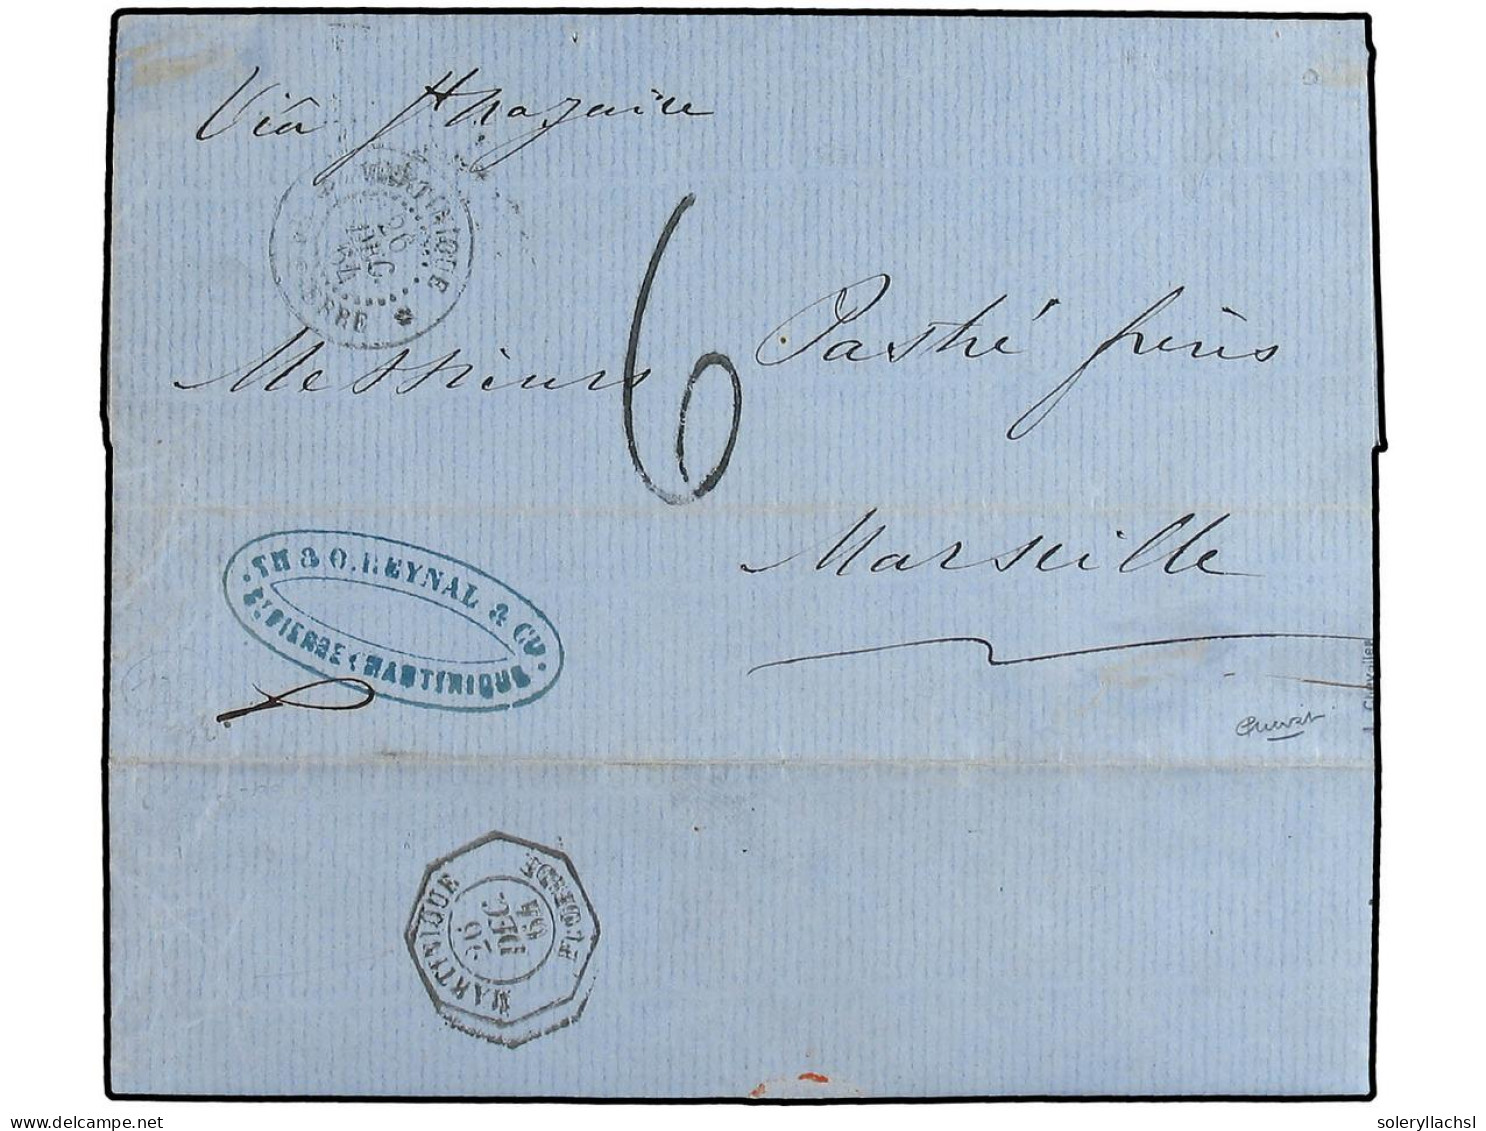 Via St nazaire
MARTINIQUE
26
DEC.
64
ST PIERRE
6
Messieurs Pastré frères
Marseille
TH & O. REYNAL & CIE
ST PIERRE (MARTINIQUE
MARTINIQUE
26
DEC
64
F. DE FCE
J. Chevalier
soleryllachsl